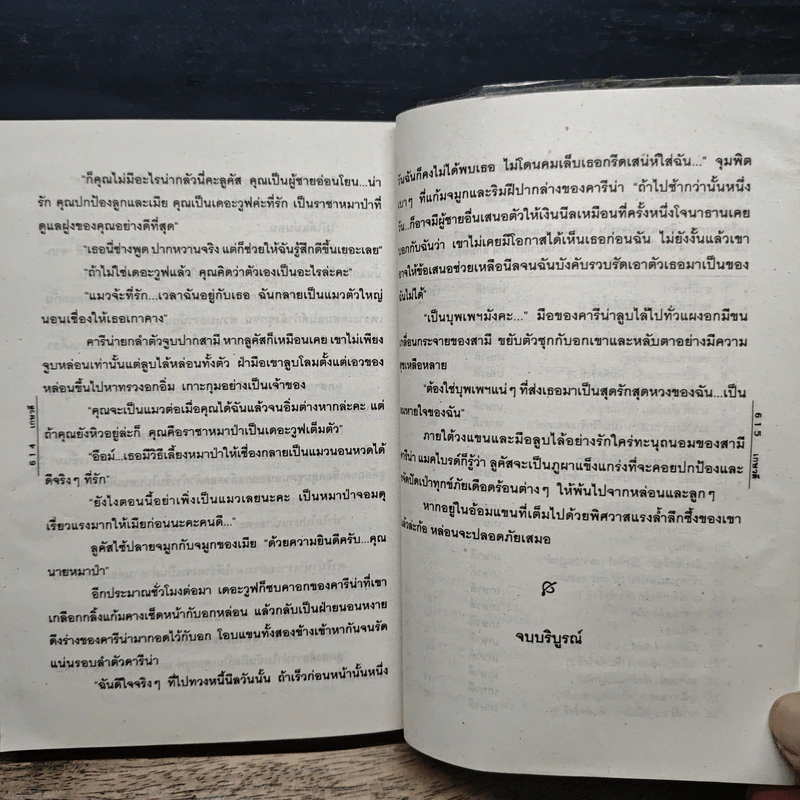 "ก็คุณไม่มีอะไรน่ากลัวนี่คะลูคัส คุณเป็นผู้ชายอ่อนโยน...น่า
รัก คุณปกป้องลูกและเมีย คุณเป็นเดอะวูฟค่ะที่รัก เป็นราชาหมาป่าที่
ดูแลฝูงของคุณอย่างดีที่สุด"
"เธอนี่ช่างพูด ปากหวานจริง แต่ก็ช่วยให้ฉันรู้สึกดีขึ้นเยอะเลย"
"ถ้าไม่ใช่เดอะวูฟแล้ว คุณคิดว่าตัวเองเป็นอะไรล่ะคะ"
"แมวจ้ะที่รัก...เวลาฉันอยู่กับเธอ ฉันกลายเป็นแมวตัวใหญ่
นอนเชื่องให้เธอเกาคาง"
คารีน่ายกลำตัวจูบปากสามี หากลูคัสก็เหมือนเคย เขาไม่เพียง
จูบหล่อนเท่านั้นแต่ลูบไล้หล่อนทั้งตัว ฝ่ามือเขาลูบโลมตั้งแต่เอวของ
หล่อนขึ้นไปหาทรวงอกอิ่ม เกาะกุมอย่างเป็นเจ้าของ
"คุณจะเป็นแมวต่อเมื่อคุณได้ฉันแล้วจนอิ่มต่างหากล่ะคะ แต่
ถ้าคุณยังหิวอยู่ล่ะก็ คุณคือราชาหมาป่าเป็นเดอะวูฟเต็มตัว"
"อืมม์...เธอมีวิธีเลี้ยงหมาป่าให้เชื่องกลายเป็นแมวนอนหวดได้
ดีจริงๆ ที่รัก"
"ยังไงตอนนี้อย่าเพิ่งเป็นแมวเลยนะคะ เป็นหมาป่าจอมดุ
เรี่ยวแรงมากให้เมียก่อนนะคะคนดี..."
ลูคัสใช้ปลายจมูกกับจมูกของเมีย "ด้วยความยินดีครับ...คุณ
นายหมาป่า"
อีกประมาณชั่วโมงต่อมา เดอะวูฟก็ซบคาอกของคารีน่าที่เขา
เกลือกกลิ้งแก้มคางเช็ดหน้ากับอกหล่อน แล้วกลับเป็นฝ่ายนอนหงาย
ดึงร่างของคารีน่ามากอดไว้กับอก โอบแขนทั้งสองข้างเข้าหากันจนรัด
แน่นรอบลำตัวคารีน่า
"ฉันดีใจจริงๆ ที่ไปทวงหนี้นีลวันนั้น ถ้าเร็วก่อนหน้านั้นหนึ่ง
614 เกษวดี
วันฉันก็คงไม่ได้พบเธอ ไม่โดนคมเล็บเธอกรีดเสน่ห์ใส่ฉัน..." จุมพิต
เบาๆ ที่แก้มจมูกและริมฝีปากล่างของคารีน่า "ถ้าไปช้ากว่านั้นหนึ่ง
วัน...ก็อาจมีผู้ชายอื่นเสนอตัวให้เงินนีลเหมือนที่ครั้งหนึ่งโจนาธานเคย
บอกกับฉันว่า เขาไม่เคยมีโอกาสได้เห็นเธอก่อนฉัน ไม่ยังงั้นแล้วเขา
อาจให้ข้อเสนอช่วยเหลือนีลจนฉันบังคับรวบรัดเอาตัวเธอมาเป็นของ
ฉันไม่ได้"
"เป็นบุพเพฯมังคะ..." มือของคารีน่าลูบไล้ไปทั่วแผงอกมีขน
เกลื่อนกระจายของสามี ขยับตัวซุกกับอกเขาและหลับตาอย่างมีความ
สุขเหลือหลาย
"ต้องใช่บุพเพฯแน่ๆ ที่ส่งเธอมาเป็นสุดรักสุดหวงของฉัน...เป็น
ลมหายใจของฉัน"
ภายใต้วงแขนและมือลูบไล้อย่างรักใคร่ทะนุถนอมของสามี
คารีน่า แมคไบรด์ก็รู้ว่า ลูคัสจะเป็นภูผาแข็งแกร่งที่จะคอยปกป้องและ
ขจัดปัดเป่าทุกข์ภัยเดือดร้อนต่างๆ ให้พ้นไปจากหล่อนและลูกๆ
หากอยู่ในอ้อมแขนที่เต็มไปด้วยพิศวาสแรงล้ำลึกซึ้งของเขา
แล้วล่ะก้อ หล่อนจะปลอดภัยเสมอ
จบบริบูรณ์
615 เกษวดี